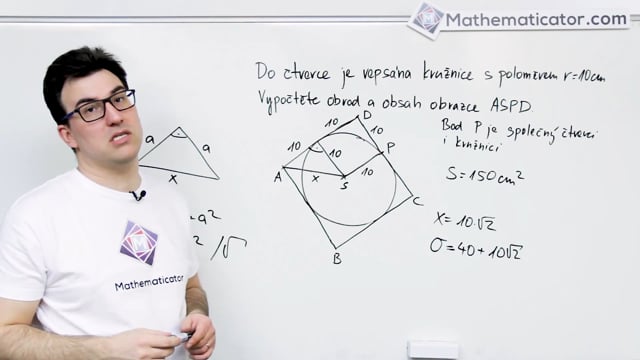 Mathematicator.com
Do čtverce je vepsána kružnice s poloměrem r=10cm
Vypočtěte obvod a obsah obrazce ASPD.
Bod P je společný čtverci
i kružnici
S=150cm²
x=10·√2
O=40+10√2
D
10
10
10
10
P
10
A
x
S
C
B
a
a
x
a²
² /√
Mathematicator